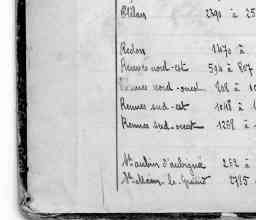 Plélan 2390 à 25
Redon 1470 à
Rennes nord-est 594 à 807
Rennes nord-ouest 808 à 10
Rennes sud-est 1048 à 1
Rennes sud-ouest 1258 à
St aubin d'aubigné 252 à
St Méen le Grand 2785